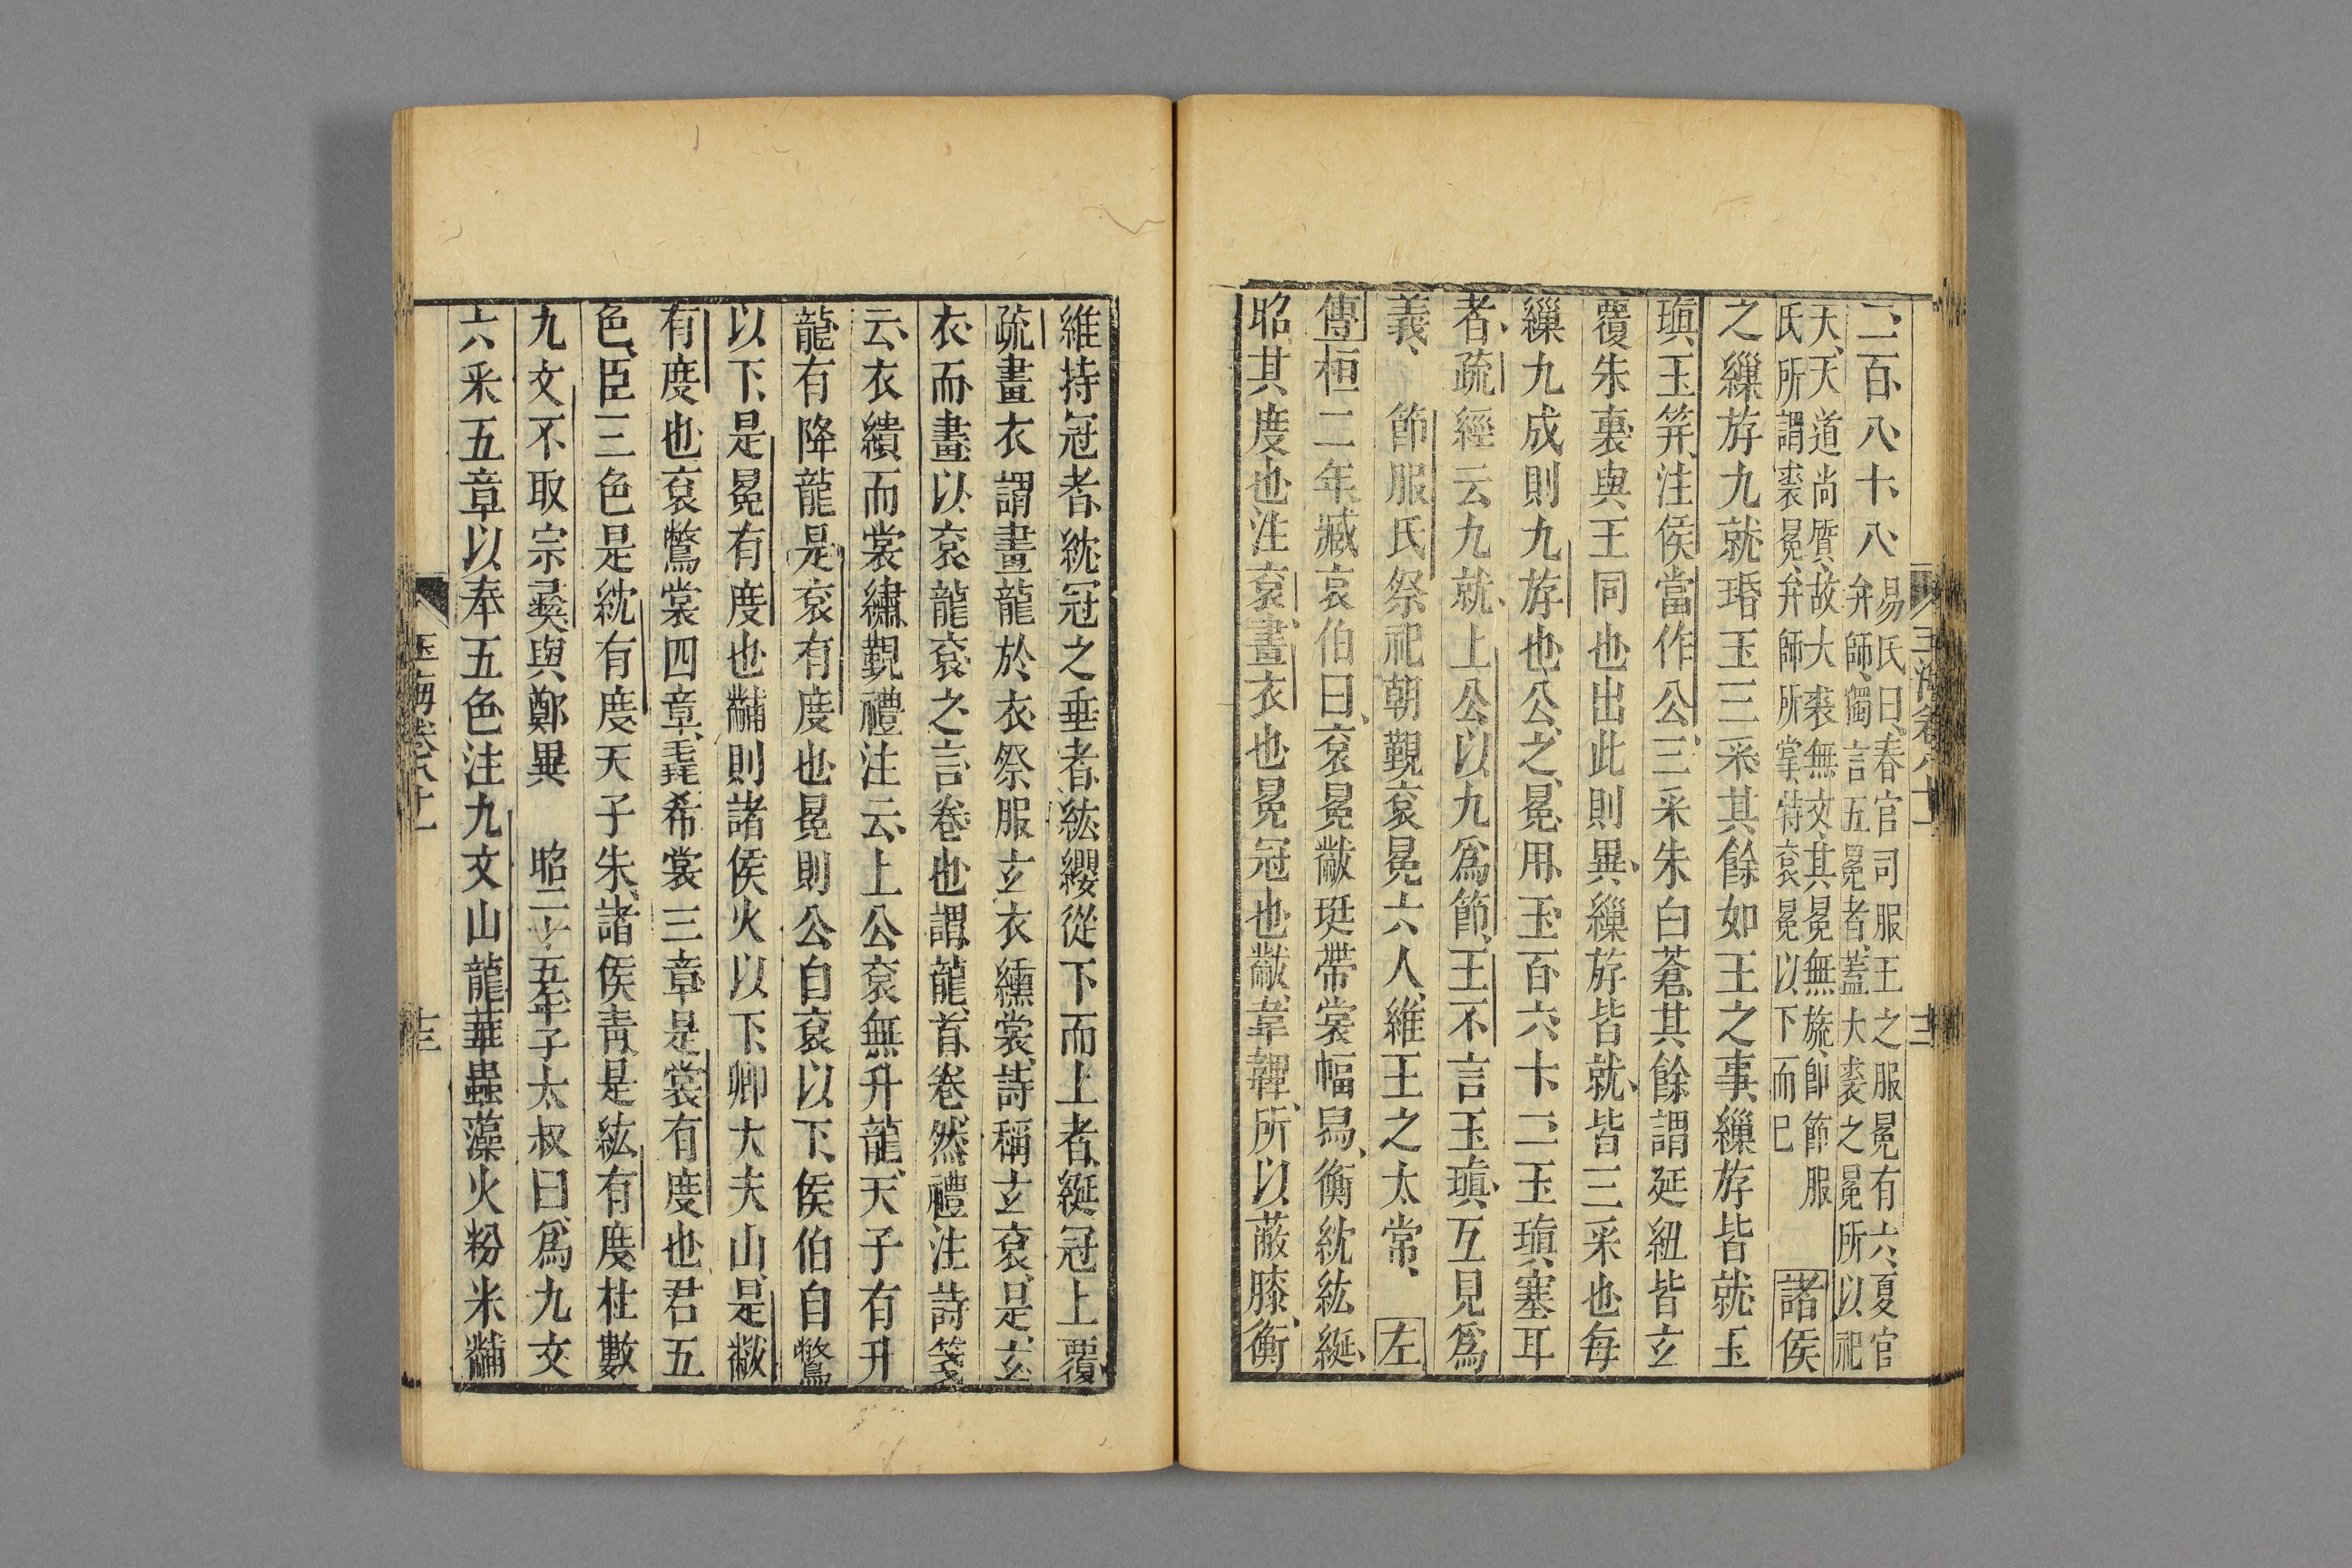 二百八十八
易氏曰春官司服王之服冕有六夏官
弁師獨言五冕者蓋大裘之冕所以祀
天天道尚質故大裘無文其冕無旒卽節服
氏所謂裘冕弁師所掌特袞冕以下而已
諸侯
之繅斿九就瑉玉三采其餘如王之事繅斿皆就玉
瑱玉笄注侯當作公三采朱白蒼其餘謂延紐皆玄
覆朱裏與王同也出此則異繅斿皆就皆三采也每
繅九成則九斿也公之冕用玉百六十二玉瑱塞耳
者疏經云九就上公以九爲節王不言玉瑱互見爲
義 節服氏祭祀朝覲袞冕六人維王之太常 左
傳桓二年臧哀伯曰袞冕黻珽帶裳幅舄衡紞紘綖
昭其度也注袞畫衣也冕冠也黻韋韠所以蔽膝衡
維持冠者紞冠之垂者紘纓從下而上者綖冠上覆
疏畫衣謂畫龍於衣祭服玄衣纁裳詩稱玄袞是玄
衣而畫以袞龍袞之言卷也謂龍首卷然禮注詩箋
云衣繢而裳繡覲禮注云上公袞無升龍天子有升
龍有降龍是袞有度也冕則公自袞以下侯伯自鷩
以下是冕有度也黼則諸侯火以下卿大夫山是黻
有度也袞鷩裳四章毳希裳三章是裳有度也君五
色臣三色是紞有度天子朱諸侯青是紘有度杜數
九文不取宗彝與鄭異 昭二十五年子太叔曰爲九文
六采五章以奉五色注九文山龍華蟲藻火粉米黼
玉海卷八十二